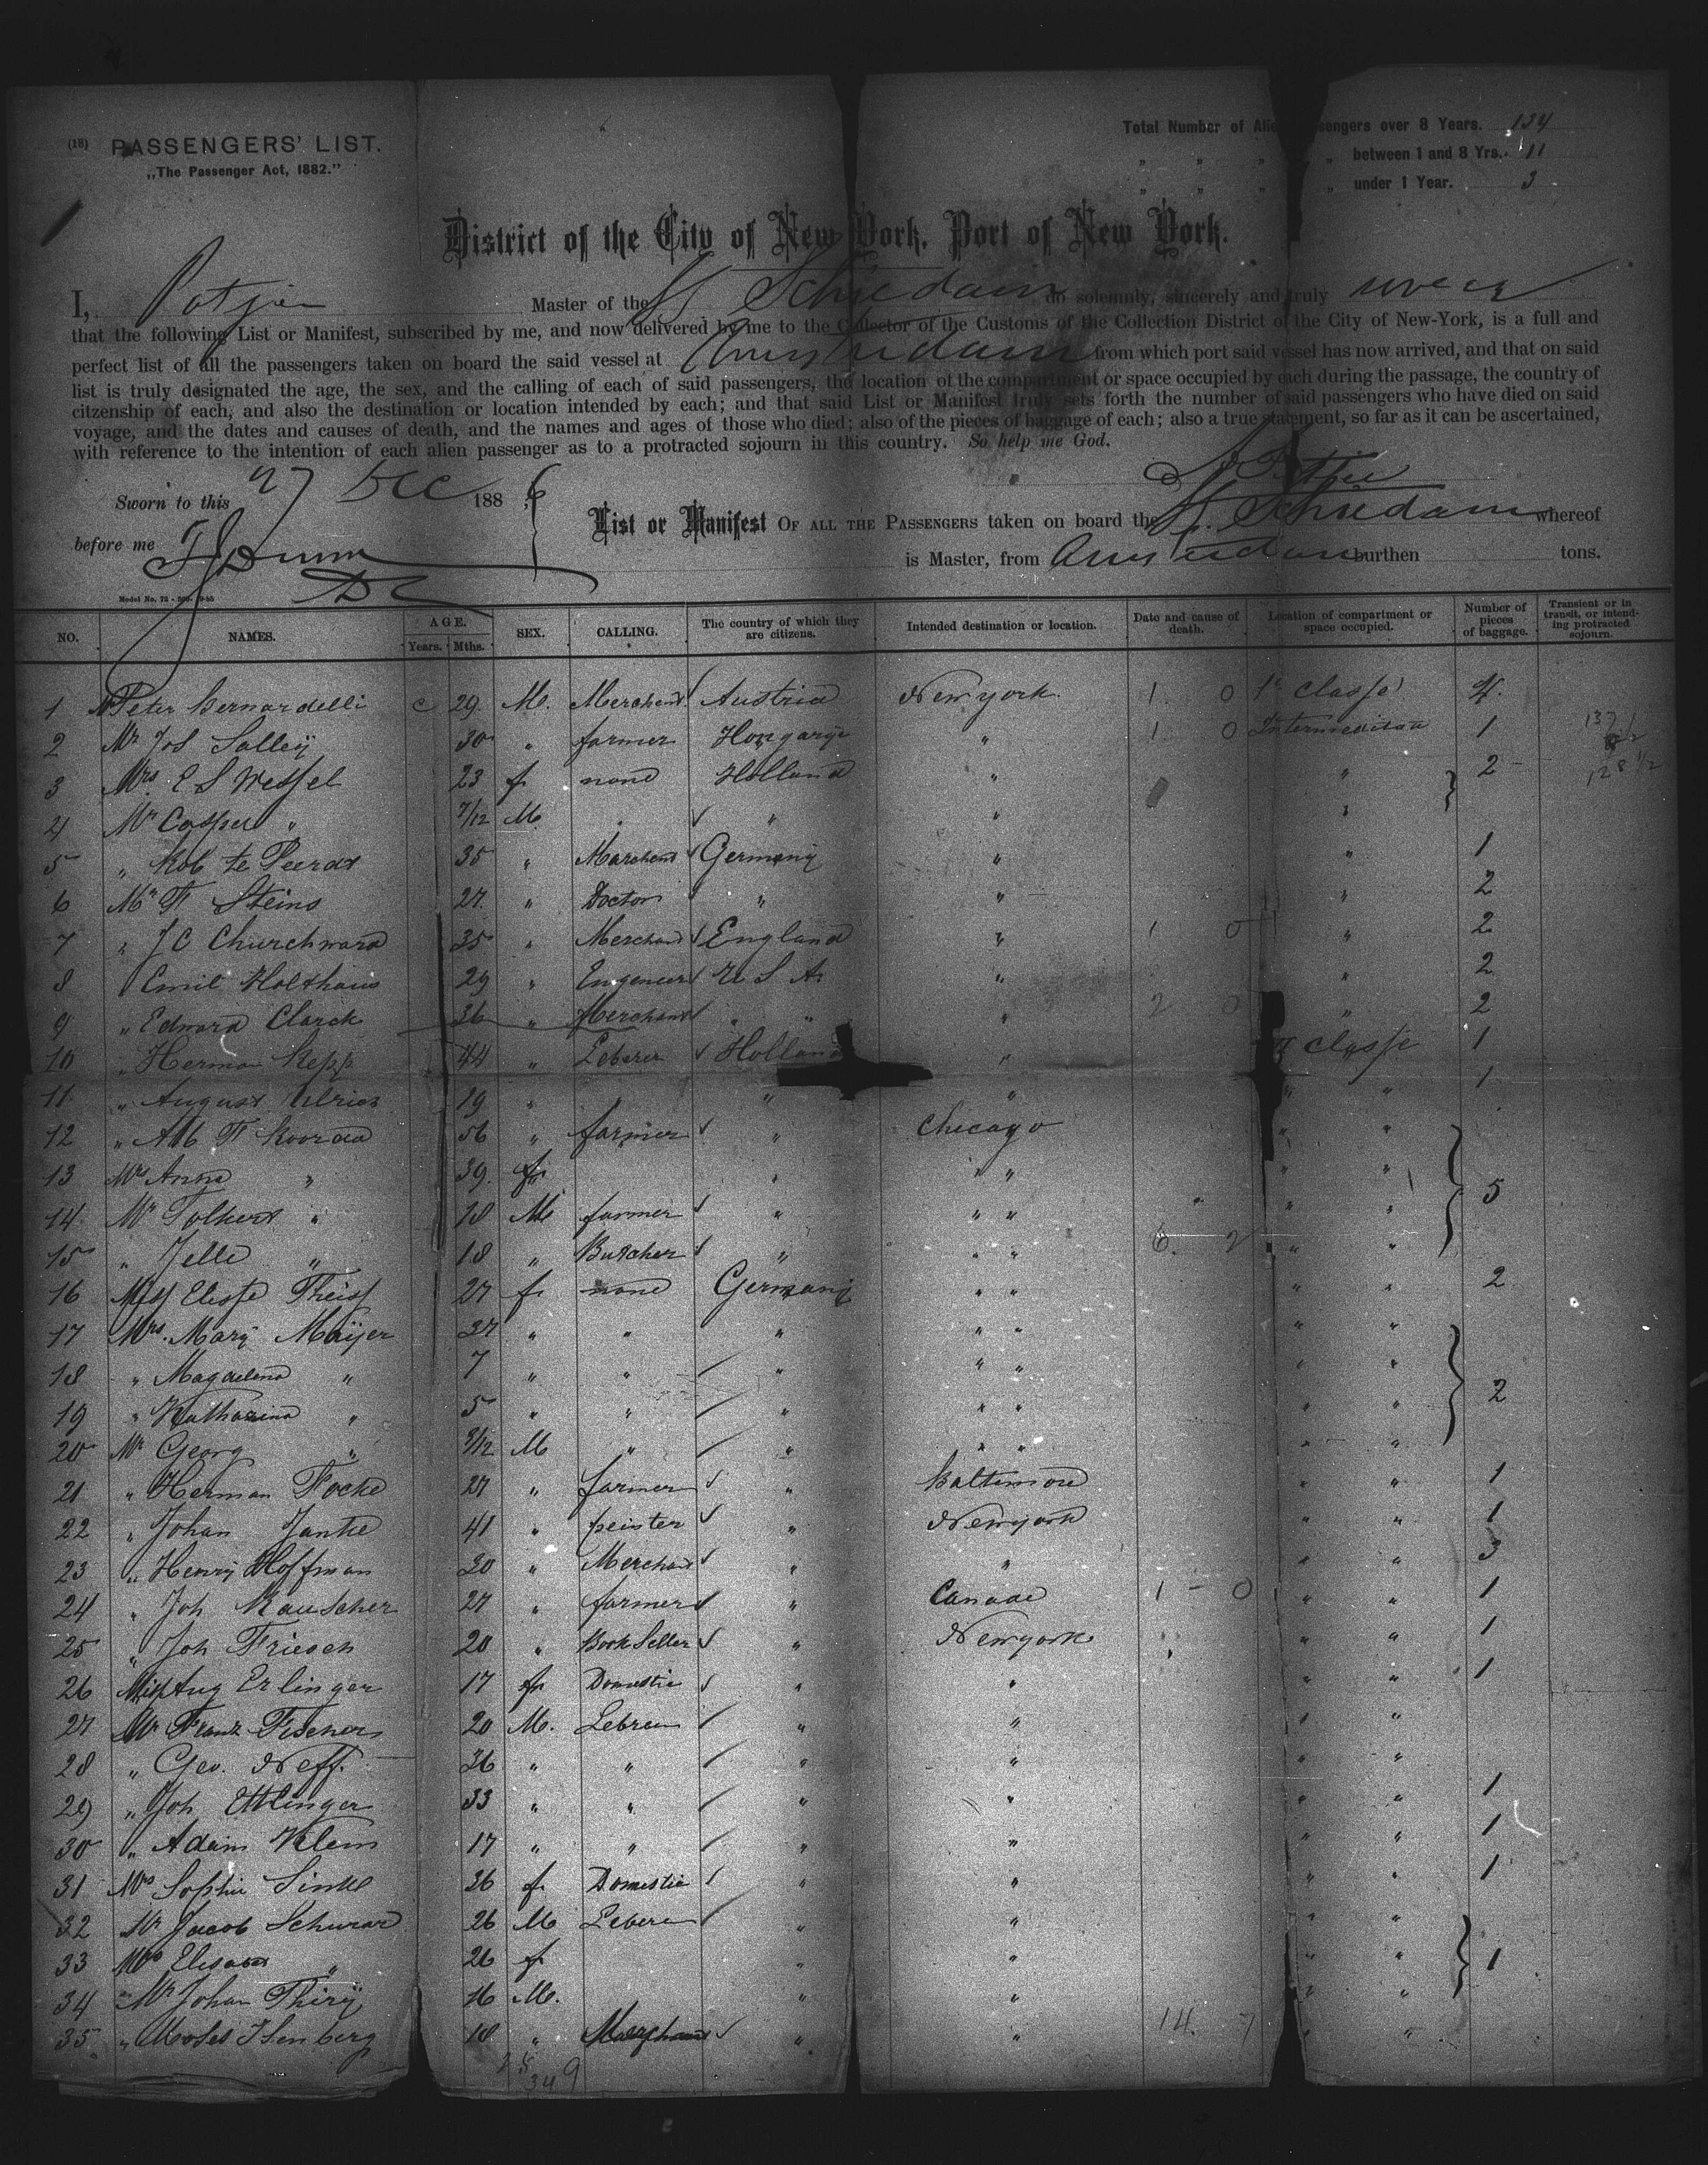 (18) PASSENGERS' LIST.
„The Passenger Act, 1882.”
Total Number of Alie ssengers over 8 Years. 134
„ „ „ „ between 1 and 8 Yrs. 11
„ „ „ „ under 1 Year. 3
District of the City of New York, Port of New York.
I, Potjer Master of the SS Schiedam do solemnly, sincerely and truly swear
that the following List or Manifest, subscribed by me, and now delivered by me to the Collector of the Customs of the Collection District of the City of New-York, is a full and
perfect list of all the passengers taken on board the said vessel at Amsterdam from which port said vessel has now arrived, and that on said
list is truly designated the age, the sex, and the calling of each of said passengers, the location of the compartment or space occupied by each during the passage, the country of
citzenship of each, and also the destination or location intended by each; and that said List or Manifest truly sets forth the number of said passengers who have died on said
voyage, and the dates and causes of death, and the names and ages of those who died; also of the pieces of baggage of each; also a true statement, so far as it can be ascertained,
with reference to the intention of each alien passenger as to a protracted sojourn in this country. So help me God.
Sworn to this 27 Dec 1886
before me
List or Manifest OF ALL THE PASSENGERS taken on board the SS. Schiedam whereof
is Master, from Amsterdam burthen tons.
NO. NAMES. AGE. Years. Mths. SEX. CALLING. The country of which they are citizens. Intended destination or location. Date and cause of death. Location of compartment or space occupied. Number of pieces of baggage. Transient or in transit, or intending protracted sojourn.
1 Peter Bernardelli 29 M. Merchant Austria New york 1 0 1e Classe 4.
2 Mr Jos Salleÿ 30 „ farmer Hongarije „ 1 0 1
3 Mrs. E S Wessel 23 f none Holland „ „ 2
4 Mr Casper „ 7/12 M. „ „
5 „ Rob te Peerdt 35 „ Marchent Germany „ „ 1
6 Mr Fr Steins 27 „ Doctor „ „ „ 2
7 „ J C Churchward 35 „ Merchand England „ 1 0 „ 2
8 Emil Holthaus 29 „ Engeneer U S A. „ „ 2
9 „ Edward Clarck 36 „ Merchant „ „ „ 2 0 „ 2
10 „ Herman Repp 44 „ Leberer Holland „ classe 1
11 „ August Ulrich 19 „ „ „ „ „ „ 1
12 „ Koorda 56 „ farmer „ Chicago „ „
13 Mrs Anna „ 39. fr „ „ „ „ „ 5
14. Mr Folkert „ 18 M farmer „ „ „ „ „
15 „ Jelle „ 18 „ Butcher „ „ „ 6. 2 „ „
16 Miss Elesse Theiss 27 f none Germany „ „ „ „ 2
17 Mrs. Mary Maijer 37 „ „ „ „ „ „ „
18 „ Magdelena „ 7 „ „ „ „ „ „ „ 2
19 „ Katharina „ 5 „ „ „ „ „ „ „
20 Mr Georg „ 9/12 M „ „ „ „ „ „
21 „ Herman Focke 27 „ farmer „ Baltimore „ „ 1
22 „ Johan Jantke 41 „ peinter „ Newyork „ „ 1
23 „ Henry Hoffman 30 „ Merchant „ „ „ „ 3
24 „ Joh Rauscher 27 „ farmer „ Canada 1 - 0 „ „ 1
25 „ Joh Friesch 20 „ Book Seller „ Newyork „ „ 1
26 Miss Aug Erlinger 17 fr Domestic „ „ „ „ 1
27 Mr Franz Fischer 20 M. Lebrer „ „ „ „
28 „ Geo. Neff. 36 „ „ „ „ „ „
29 „ Joh Ettlinger 33 „ „ „ „ „ „ 1
30 „ Adam Klem 17 „ „ „ „ „ „ 1
31 Mrs Sophie Sinke 36 f. Domestic „ „ „ „ 1
32 Mr Jacob Schurar 26 M Leberer „ „ „ „
33 Mrs Elisabet „ 26 f „ „ „ 1
34 Mr Johan Thirij 16 M. „ „ „ „
35 „ Moses Isenberg 18 „ Merchant „ „ 14. 7 „ „